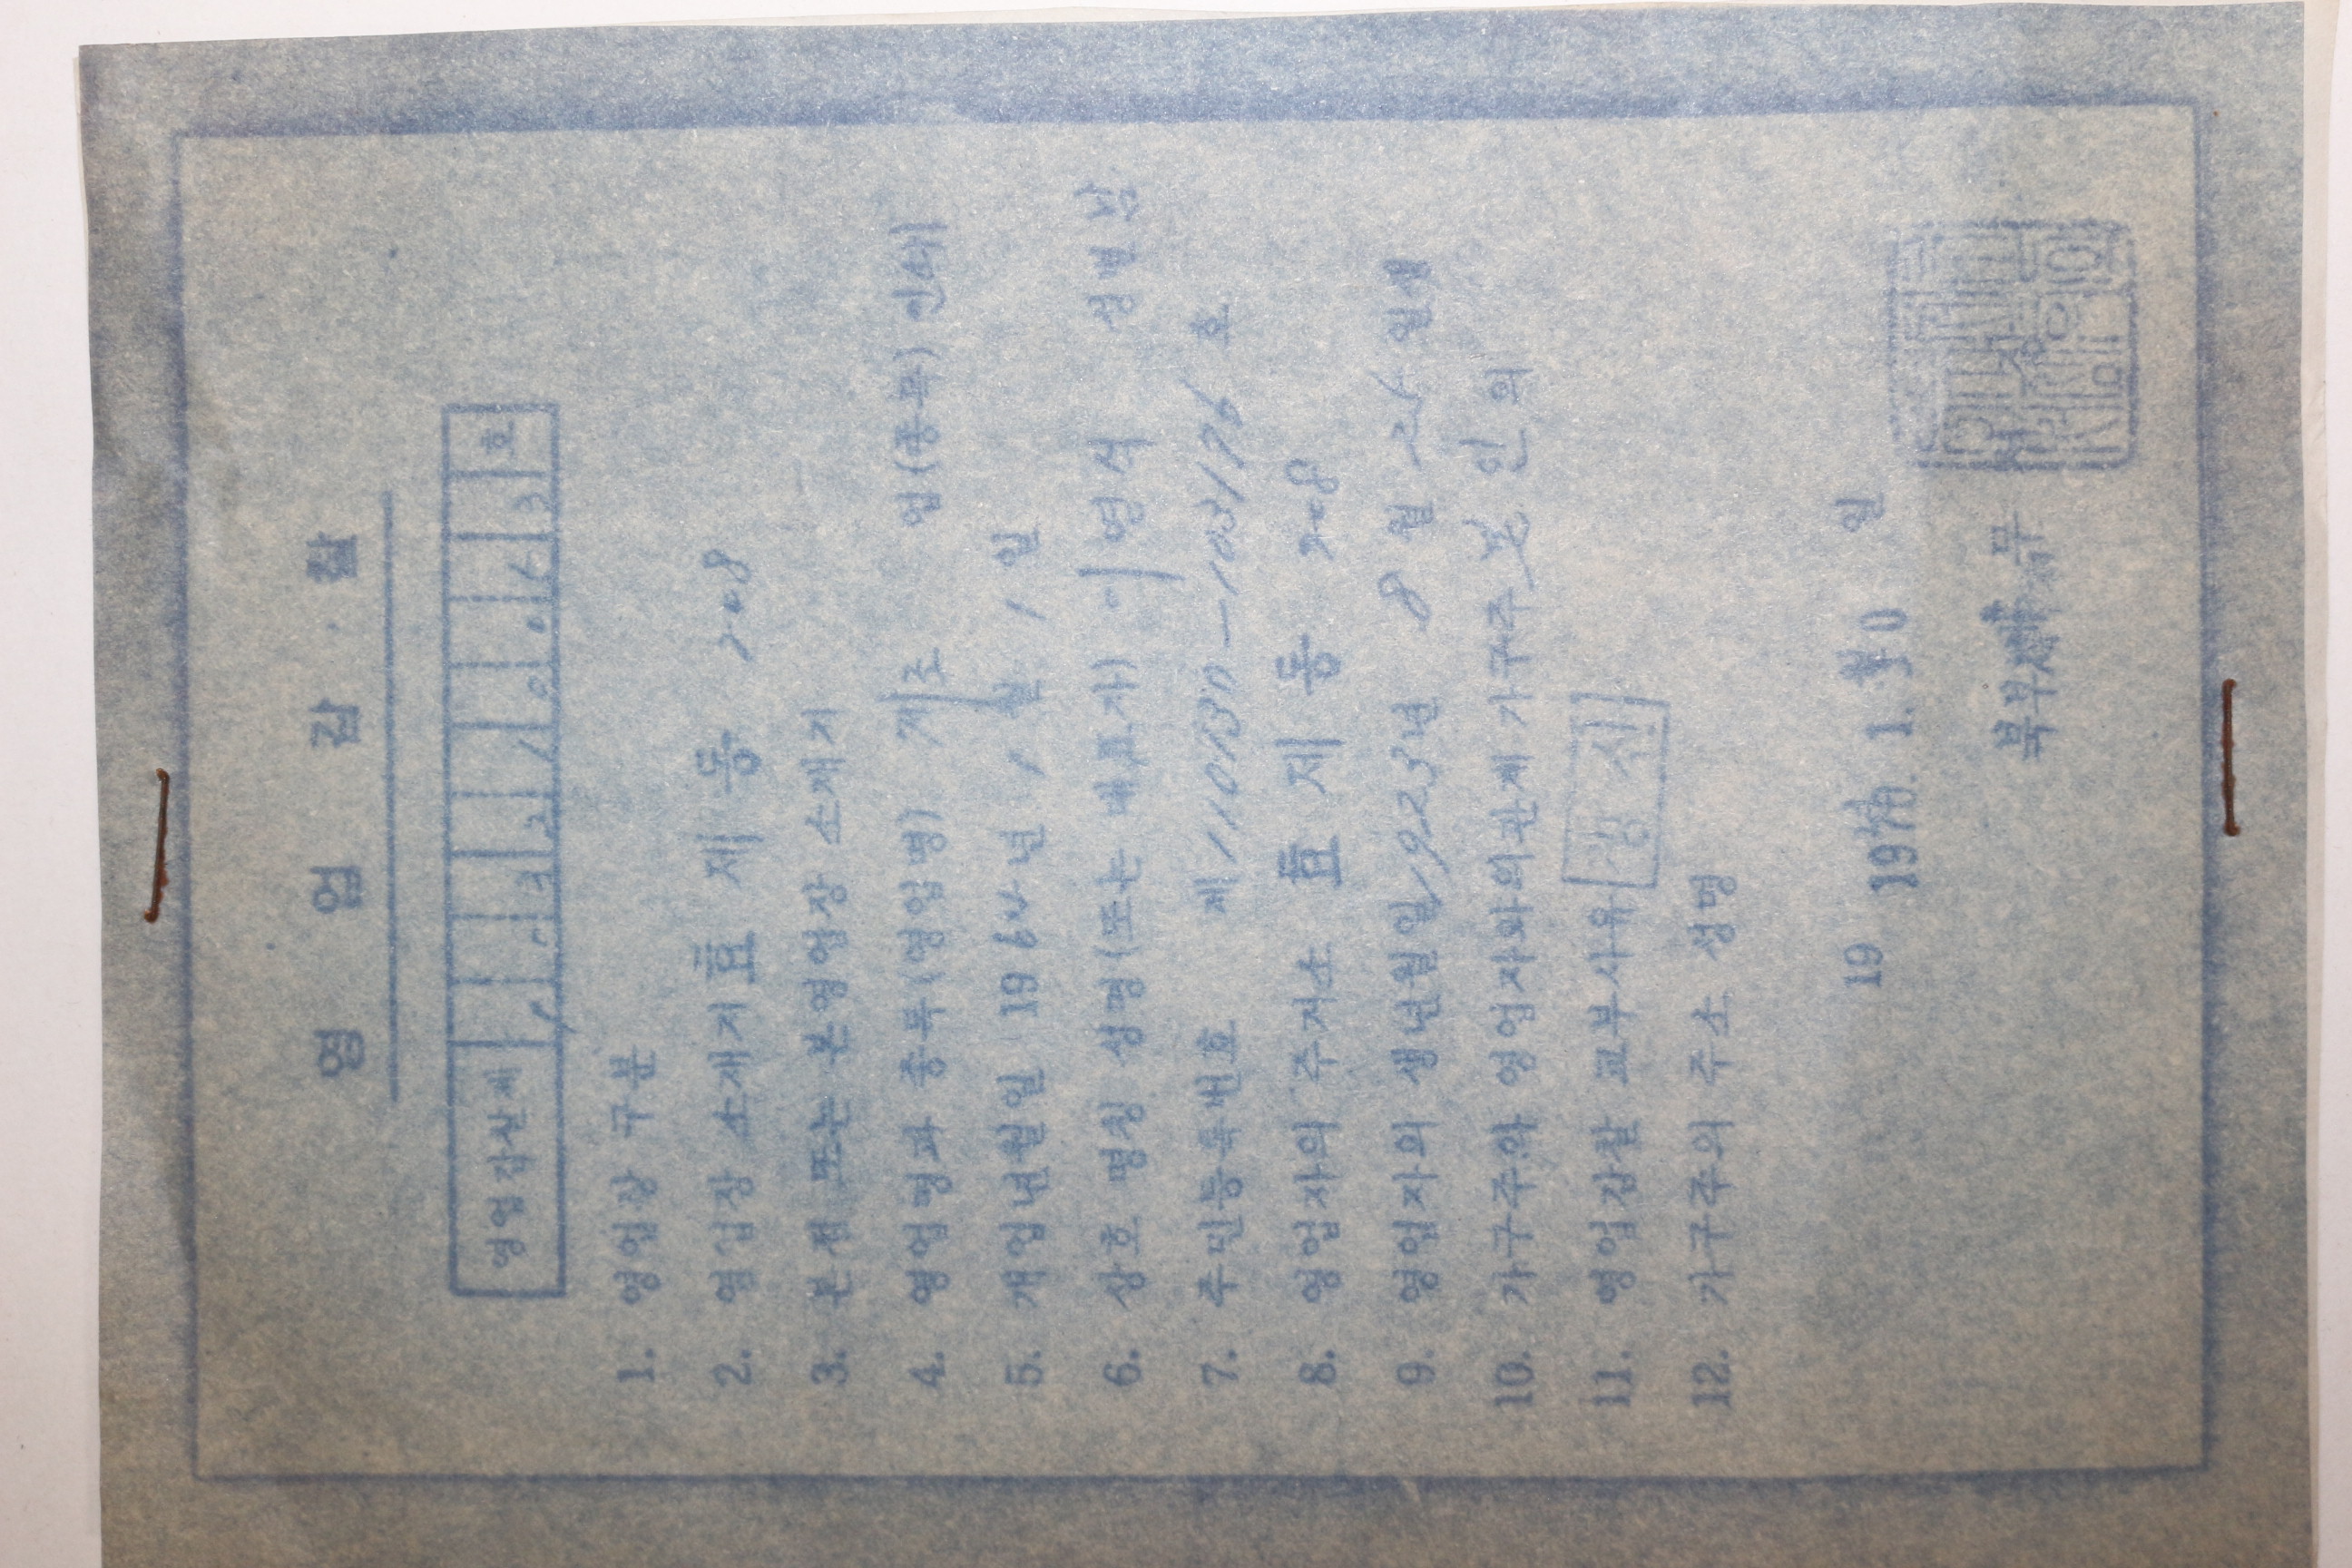 영 업 감 찰
영업감찰제 호
1. 영업장 구분
2. 영업장 소재지 효제동 208
3. 본점 또는 본영업장 소재지
4. 영업명과 종목(영업명) 제조 업(종목) 인쇄
5. 개업년월일 1964년 1월 1일
6. 상호 명칭 성명(또는 대표자) 이영석 성별 남
7. 주민등록번호 제 110130-103196 호
8. 영업자의 주거소 효제동 208
9. 영업자의 생년월일 1923년 8월 21일생
10. 가구주와 영업자와의관계 가구주 본인의
11. 영업감찰 교부사유 갱신
12. 가구주의 주소 성명
19 년 월 일
1970. 1. 30
북부세무